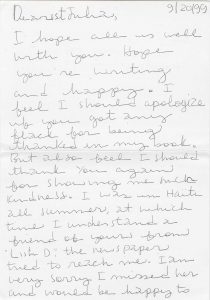 Dearest Julia,
9/20/99
I hope all is well
with you. Hope
you're writing
and happy. I
feel I should apologize
if you got any
flack for being
thanked in my book.
But also feel I should
thank you again
for showing me such
kindness. I was in Haiti
all summer, at which
time I understand a
friend of yours from
the newspaper
tried to reach me. I am
very sorry I missed her
and would be happy to